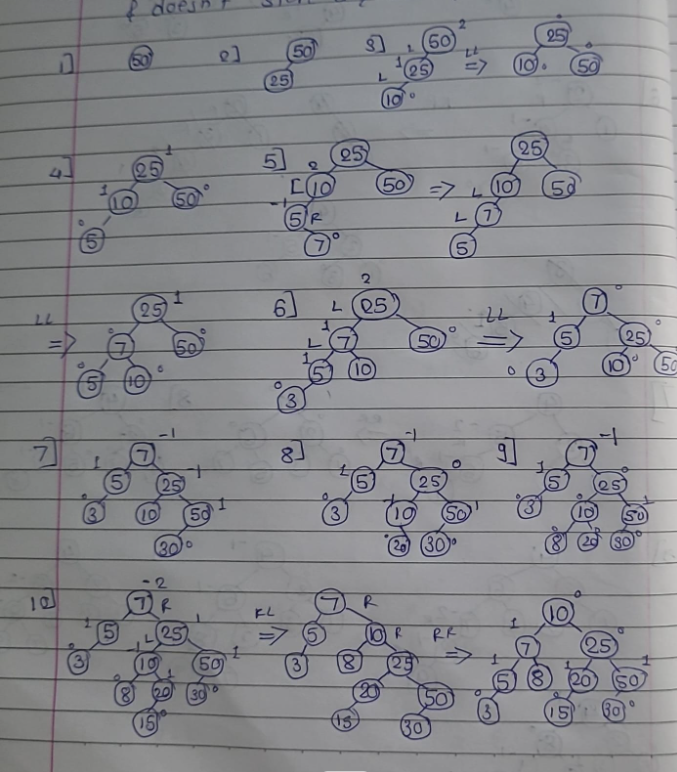 & doesn't
1] 50 2] 50 25 3] 50 2 L 1 25 L 10 0 LL => 25 0 10 0 50 0
4] 25 1 1 10 50 0 0 5 5] 25 2 L 10 50 -1 5 R 7 0 => 25 L 10 50 L 7 5
LL => 25 1 0 7 50 0 0 5 10 0 6] 2 L 25 1 L 7 50 0 1 5 10 0 3 LL => 7 0 1 5 25 0 0 3 10 0 50
7] 7 -1 1 5 25 -1 0 3 10 50 1 30 0 8] 7 -1 1 5 25 0 0 3 -1 10 50 1 0 20 30 0 9] 7 -1 1 5 25 0 0 3 0 10 50 1 0 8 20 0 30 0
10] -2 7 R 1 5 L 25 1 0 3 -1 10 50 1 0 8 20 1 30 0 15 0 RL => 7 R 5 10 R 3 8 25 20 50 15 30 RR => 10 0 1 7 25 0 1 5 8 1 20 50 1 0 3 15 0 30 0